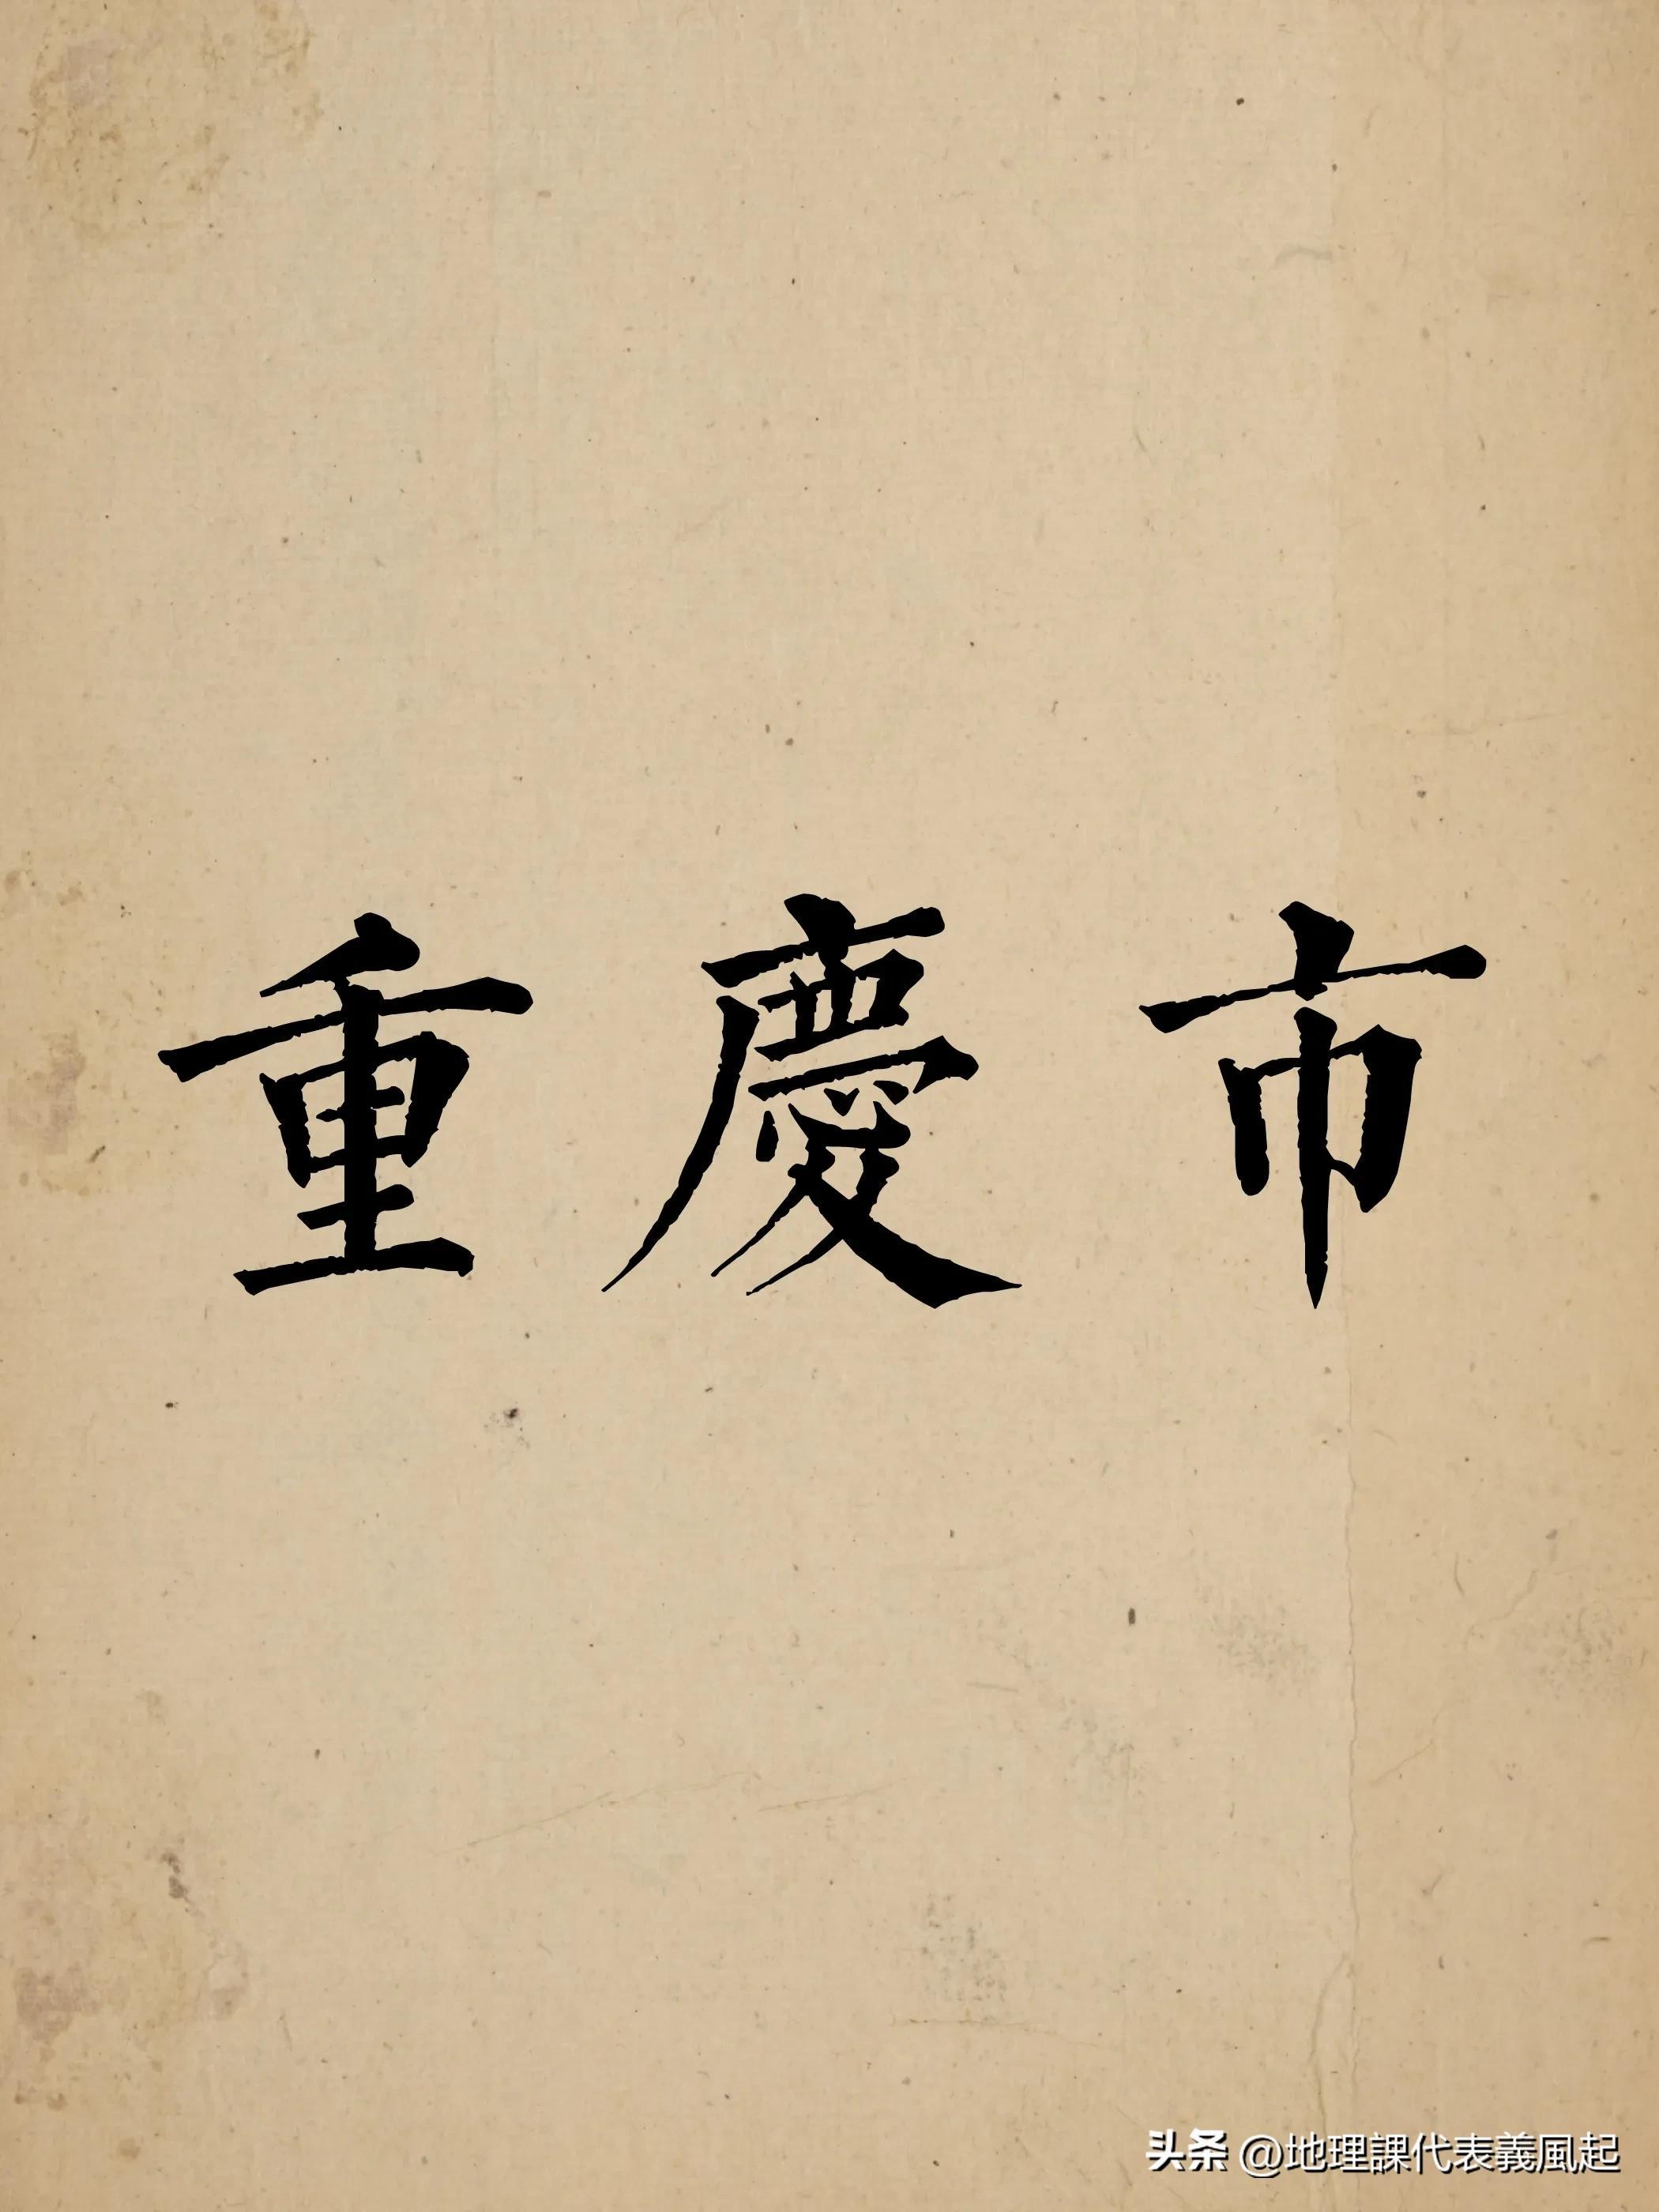 重慶市
头条 @地理課代表義風起